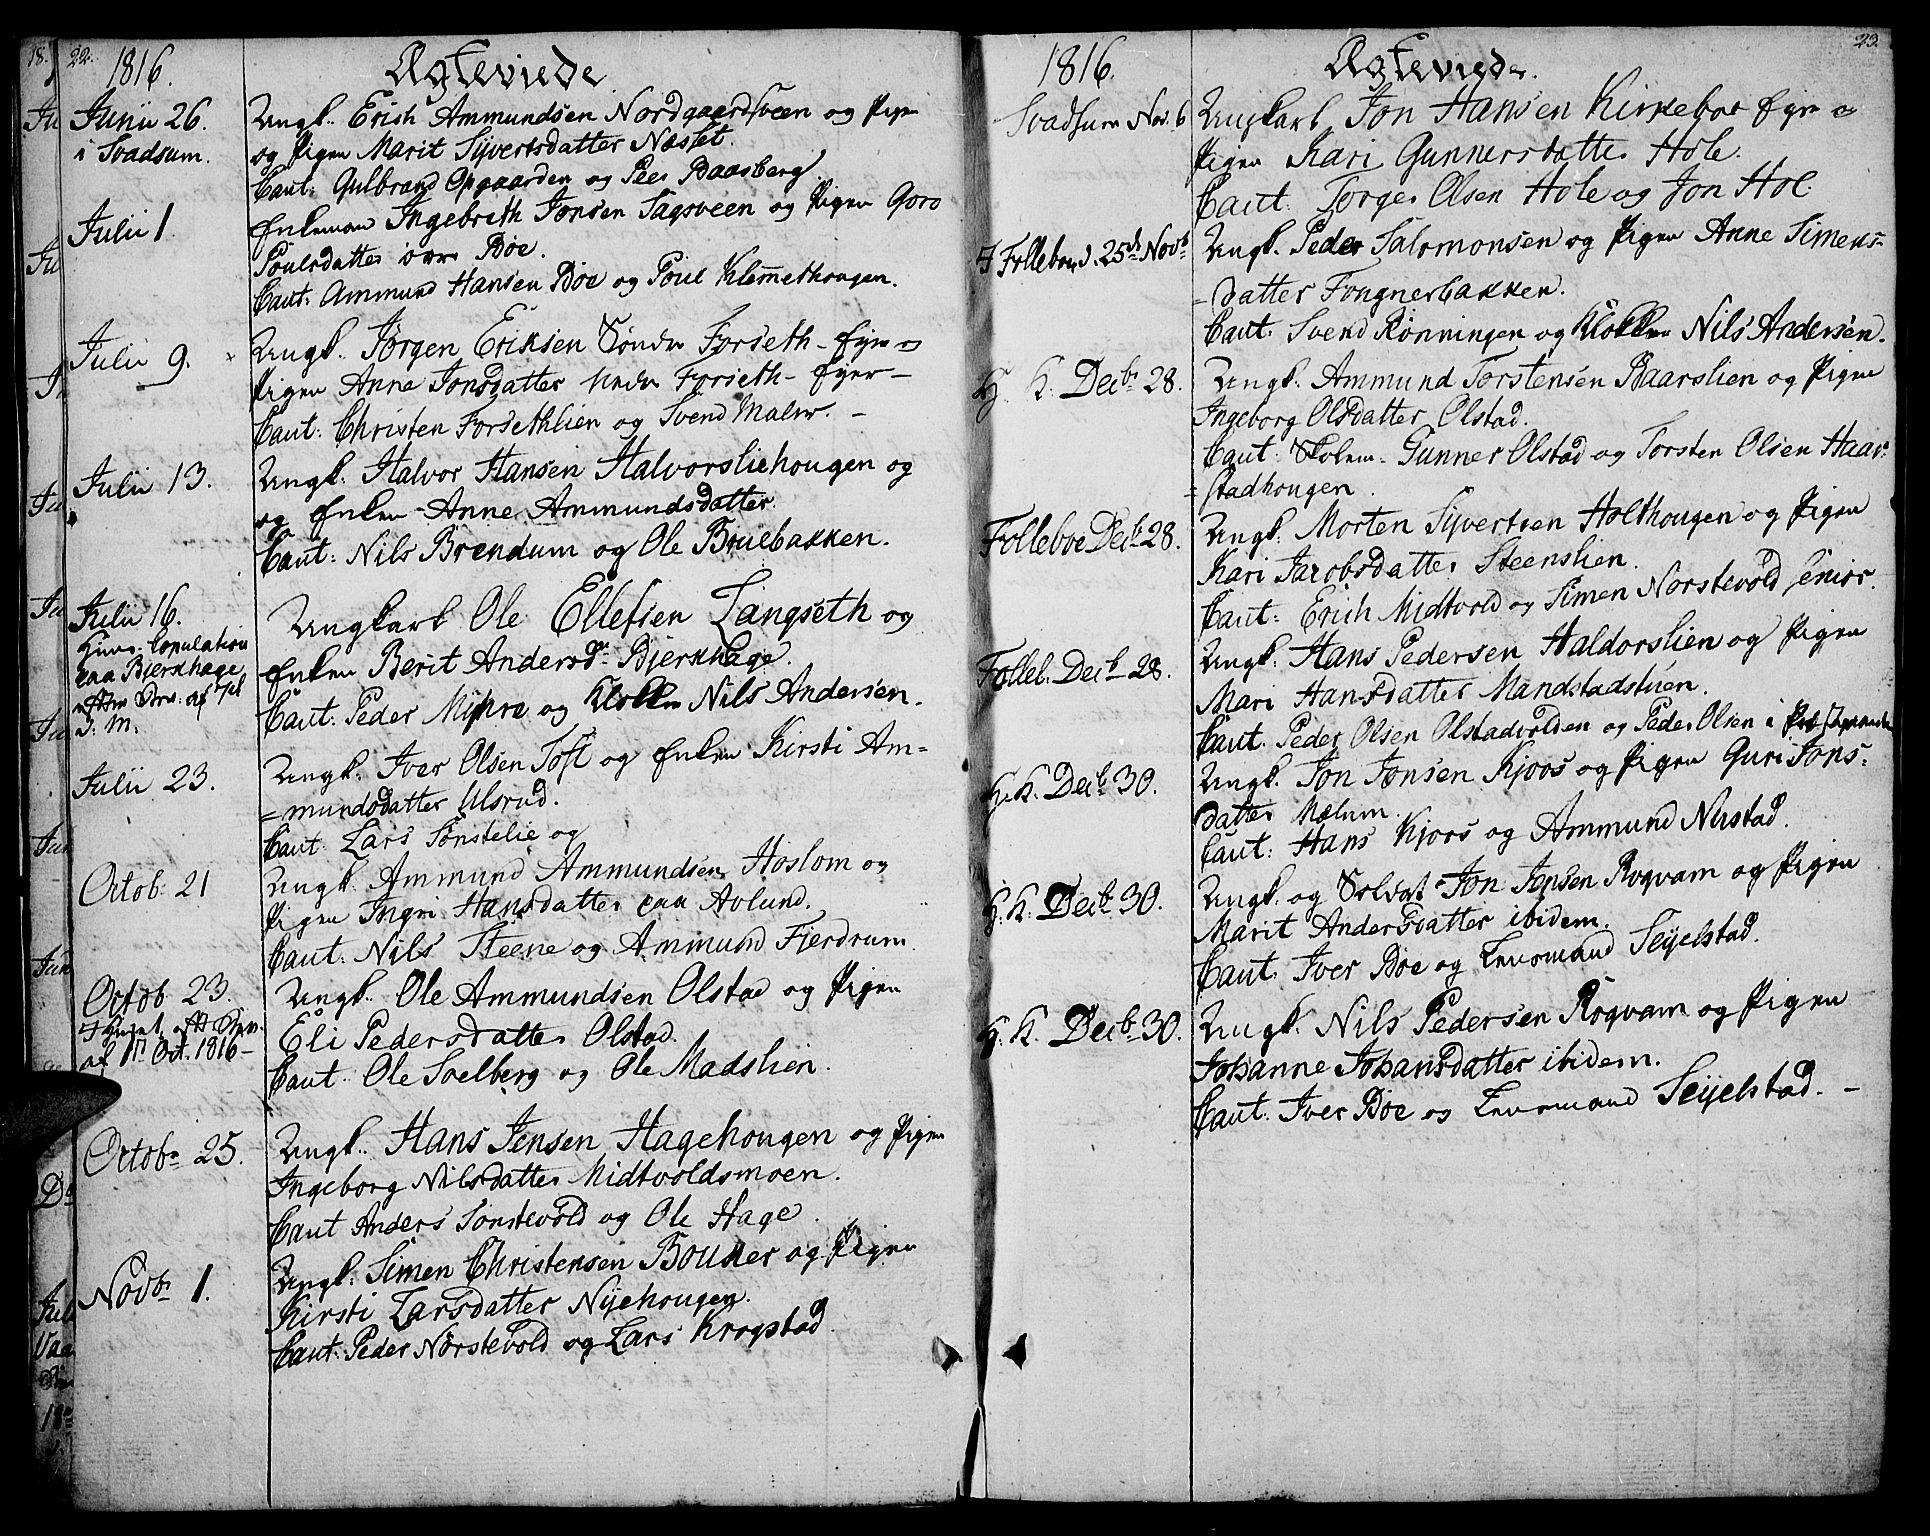 22.
1816. Ægteviede
Junii 26. Ungk. Erich Ammundsen Nordgaardsveen og Pigen
i Svadsum. og Pigen Marit Syvertsdatter Næset.
Caut: Gulbrand Opgaarden og Peer Baasberg.
Julii 1. Enkeman Ingebreth Jonsen Sagsveen og Pigen Goro
Poulsdatter øvre Bøe.
Caut: Ammund Hansen Bøe og Poul Klemmethougen.
Julii 9. Ungk. Jørgen Eriksen Søndre Forseth
Pigen Anne Jonsdatter nedre Forseth
Caut: Christen Forsethlien og Svend
Julii 13. Ungk. Halvor Hansen Halvorsliehougen og
og Enken Anne Ammundsdatter.
Caut: Nils Brendum og Ole Bruebakken.
Julii 16. Ungkarl Ole Ellefsen Langseth og
Copulation
paa Bjerkhage Enken Berit Andersd. Bjerkhage.
af 7de
J. M. Caut: Peder Myhre og Klokker Nils Andersen.
Julii 23. Ungk. Iver Olsen Toft og Enken Kirsti Am=
=mundsdatter Ulsrud.
Caut: Lars Sønstelie og
Octob: 21 Ungk. Ammund Ammundsen Hoslom og
Pigen Ingri Hansdatter paa Avlund.
Caut: Nils Steene og Ammund Fjerdrum.
Octob 23. Ungk. Ole Ammundsen Olstad og Pigen
Eli Pedersdatter Olstad.
af 1ste Oct. 1816 Caut: Ole Soelberg og Ole Madslien.
Octobr 25. Ungk. Hans Jensen Hagehougen og Pigen
Ingeborg Nilsdatter Midtvoldsmoen.
Caut Anders Sønstevold og Ole Hage.
Novbr 1. Ungk. Simen Christensen Bouker og Pigen
Kirsti Larsdatter Nyehougen.
Caut: Peder Nørstevold og Lars Krogstad.
23.
1816. Ægteviede.
Svadsum Nov. 6 Ungkarl Jon Hansen Kirkeboe
Pigen Kari Gunnersdatter Hole.
Caut: Torger Olsen Hole og Jon Hol.
I Folleboe d. 25de Novbr Ungk. Peder Salomonsen og Pigen Anne Simens=
=datter Fougnerbakken.
Caut: Svend Rønningen og Klokker Nils Andersen.
H. K. Decbr 28. Ungk. Ammund Torstensen Baarslien og Pigen
Ingeborg Olsdatter Olstad.
Caut: Skolem. Gunner Olstad og Torsten Olsen Haar=
=stadhougen.
Folleboe Decb. 28. Ungk. Morten Syvertsen Holthougen og Pigen
Kari Jacobsdatter Steenslien.
Caut: Erich Midtvold og Simen Nørstevold senior.
Folleb. Decb 28. Ungk. Hans Pedersen Haldorslien og Pigen
Mari Hansdatter Mandstadstuen.
Caut. Peder Olsen Olstadvolden og Peder Olsen i
H. K. Decb. 30. Ungk. Jon Jonsen Kjoos og Pigen Guri Jons=
datter Mælum.
Caut: Hans Kjoos og Ammund Nustad.
H. K. Decb 30. Ungk. og Soldat Jon Jensen Roqvam og Pigen
Marit Andersdatter ibidem.
Caut. Iver Boe og Lensmand Seyelstad.
H. K. Decb. 30. Ungk. Nils Pedersen Roqvam og Pigen
Johanne Johansdatter ibidem.
Caut: Iver Boe og Lensmand Seyelstad.